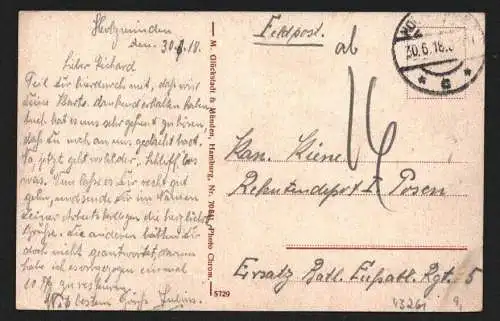 Holzminden
den 30.6.18.
Lieber Richard
Teil Dir hierdurch mit, daß wir
Deine Karte dankend erhalten haben,
hat es uns sehr gefreut zu hören,
daß Du noch an uns gedacht hast.
was. Nun lasse es Dir recht gut
gehen, und sende Dir im Namen
Deiner Arbeitskollegen die herzlichsten
Grüße. Die anderen hätten Dir
doch nicht geantwortet darum
habe ich einmal
10 Pfg zu
Mit bestem Gruß Julius.
M. Glückstadt & Münden, Hamburg, Nr. Photo Chrom.
5729
Feldpost.
ab
30.6.18.
Kan. Kiene
Rekrutendepot I Posen
Ersatz Batl. Fußartl. Rgt. 5